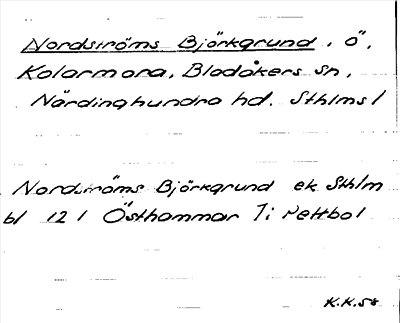 Nordströms Björkgrund, ö,
Kolarmora, Bladåkers sn,
Närdinghundra hd. Sthlms l
Nordströms Björkgrund ek Sthlm
bl 12 1 Östhammar 7:
K.K.58